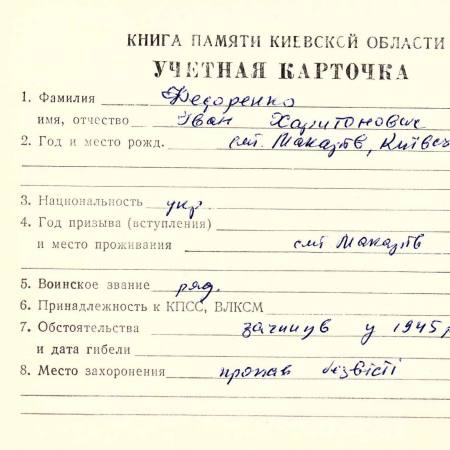 КНИГА ПАМЯТИ КИЕВСКОЙ ОБЛАСТИ
УЧЕТНАЯ КАРТОЧКА
1. Фамилия Федоренко
имя, отчество Іван Харитонович
2. Год и место рожд. смт. Макарів, Київсь
3. Национальность укр.
4. Год призыва (вступления)
и место проживания смт Макарів
5. Воинское звание ряд.
6. Принадлежность к КПСС, ВЛКСМ
7. Обстоятельства загинув у 1945 р
и дата гибели
8. Место захоронения пропав безвісті